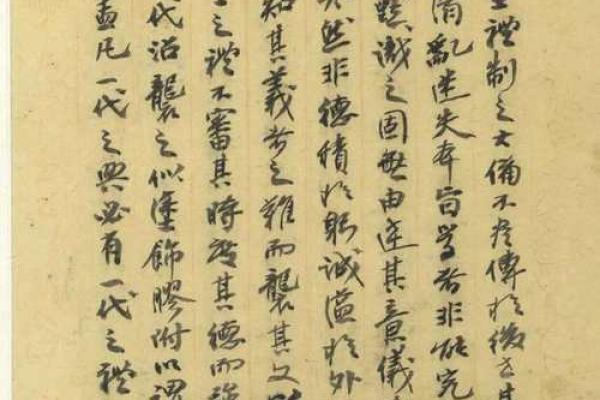 禮制之大備不傳於後世其
淆亂迷失本旨學者非能究
識之固無由達其意儀
然非德積於躬誠溢於外
知其義者之難而襲其文
之禮不審其時度其德而
代沿襲之似塗飾膠附以謂
盖凡一代之興必有一代之禮